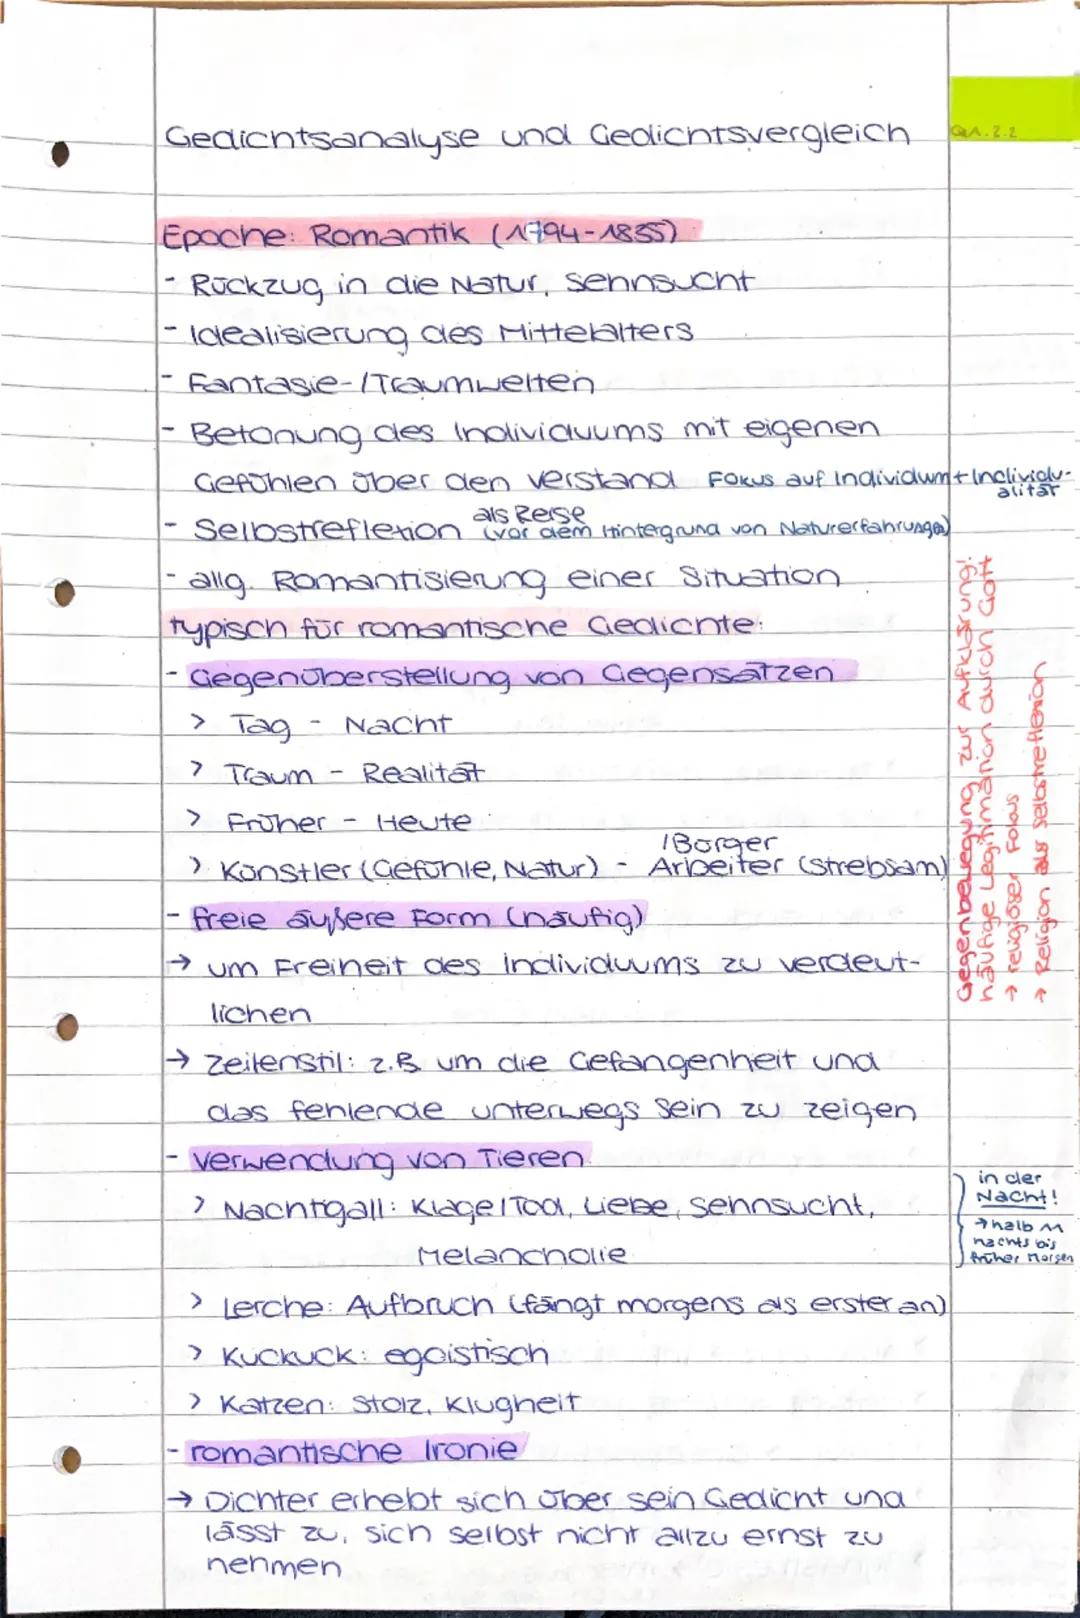 Gedichtsanalyse und Gedichtsvergleich
QA.2.2
Epoche: Romantik (1794-1835)
- Rückzug in die Natur, Sehnsucht
- Idealisierung des Mittelalters
- Fantasie-/Traumwelten
- Betonung des Individuums mit eigenen
Gefühlen über den Verstand Fokus auf Individum + Individu-
alität
- Selbstreflexion als Reise
(vor dem Hintergrund von Naturerfahrungen)
- allg. Romantisierung einer Situation
typisch für romantische Gedichte:
- Gegenüberstellung von Gegensätzen
> Tag - Nacht
> Traum - Realität
> Früher - Heute
/Bürger
> Künstler (Gefühle, Natur) - Arbeiter (strebsam)
- freie äußere Form (häufig)
→ um Freiheit des Individuums zu verdeut-
lichen
→ Zeilenstil: z.B. um die Gefangenheit und
das fehlende unterwegs sein zu zeigen
- Verwendung von Tieren
> Nachtigall: Klage/Tod, Liebe, Sehnsucht,
Melancholie
> Lerche: Aufbruch (fängt morgens als erster an)
> Kuckuck: egoistisch
> Katzen: Stolz, Klugheit
- romantische Ironie
→ Dichter erhebt sich über sein Gedicht und
lässt zu, sich selbst nicht allzu ernst zu
nehmen
Gegenbewegung zur Aufklärung!
häufige Legitimation durch Gott
→ religiöser Fokus
→ Religion als Selbstreflexion
in der
Nacht!
→ halb 11
nachts bis
früher Morgen